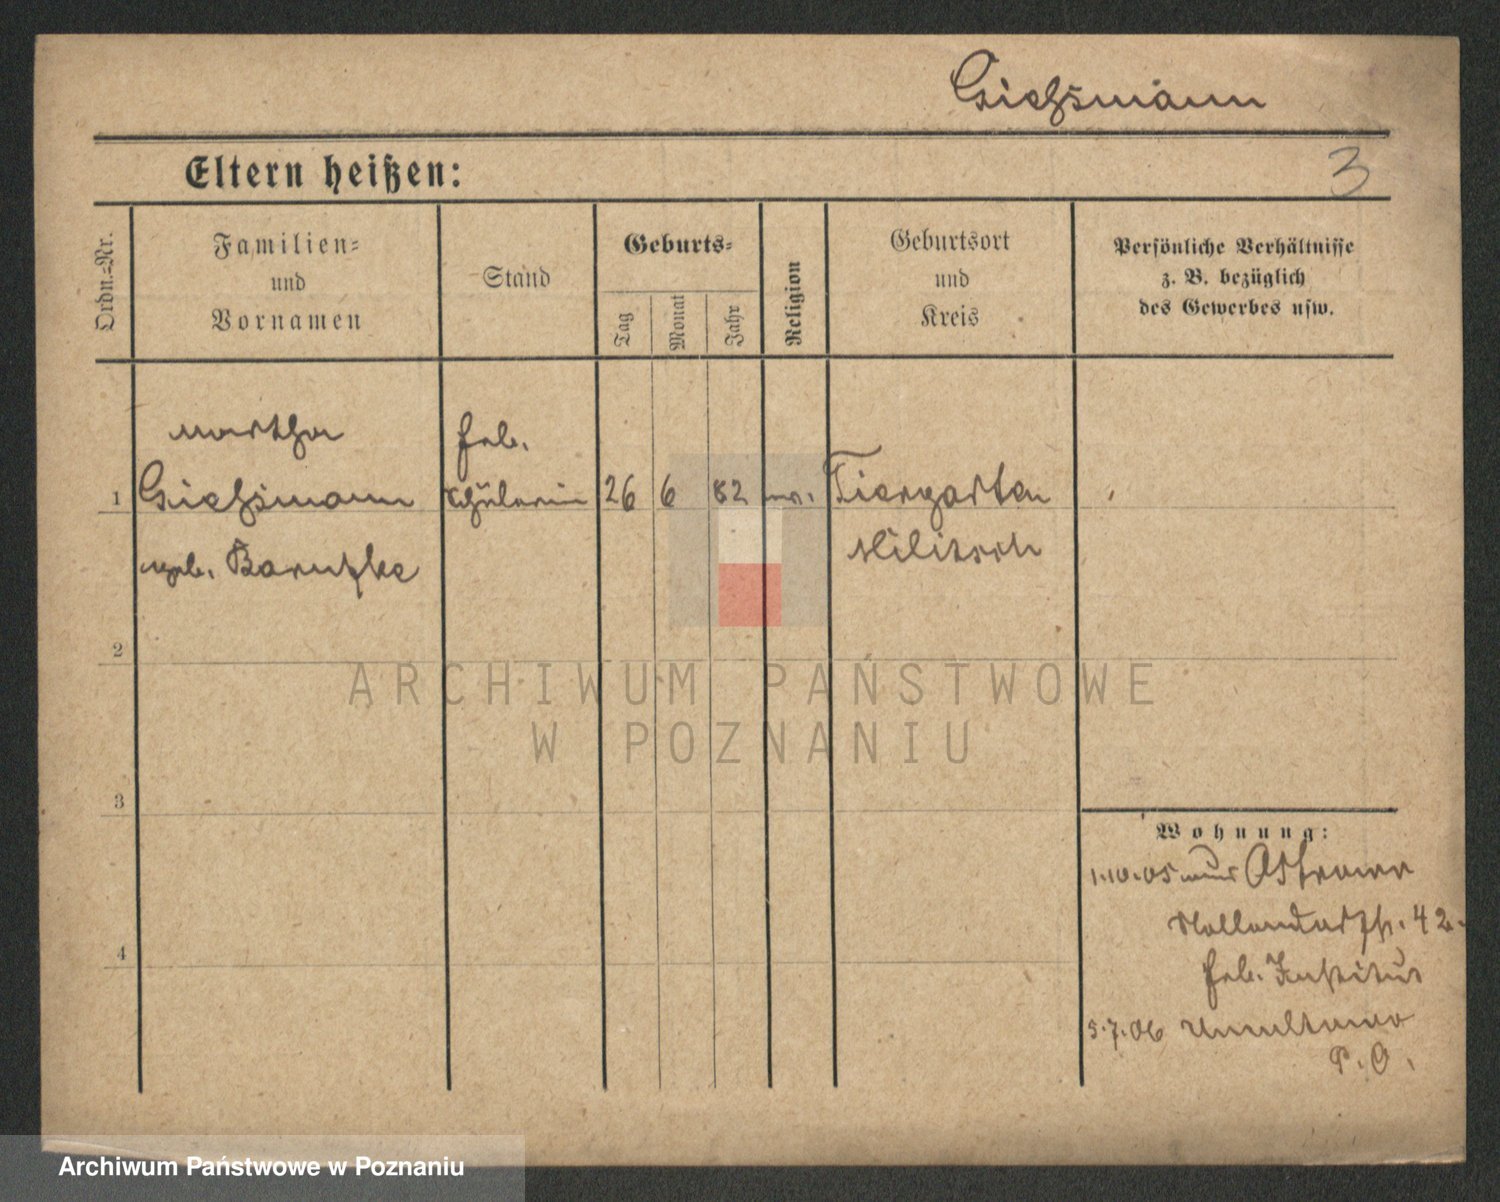 Giehsmann
Eltern heißen:
3
Ordn.=Nr.
Familien=
und
Vornamen
Stand
Geburts=
Tag
Monat
Jahr
Religion
Geburtsort
und
Kreis
Persönliche Verhältnisse
z. B. bezüglich
des Gewerbes usw.
Martha
Heb.
1
Giehsmann
Schülerin
26
6
82
ev.
Tiergarten
geb.
Militsch
2
3
4
Wohnung:
1.10.05 aus Ostrowo
42.
Heb. Institut
5.7.06
P. O.
ARCHIWUM PAŃSTWOWE
W POZNANIU
Archiwum Państwowe w Poznaniu